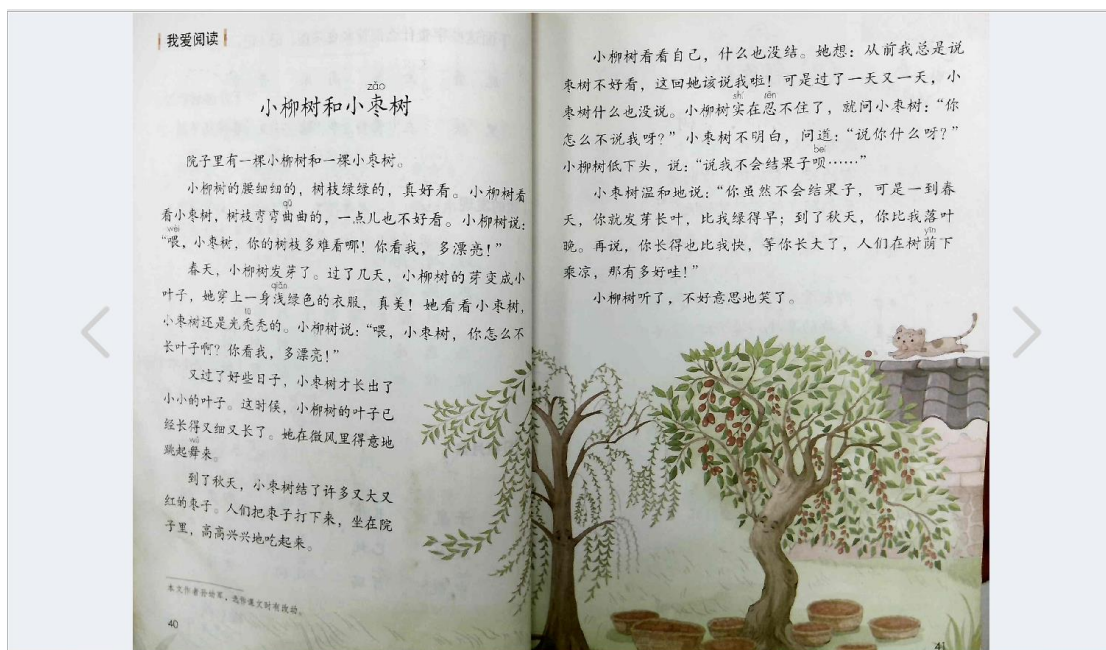 我爱阅读
zǎo
小柳树和小枣树
院子里有一棵小柳树和一棵小枣树。
小柳树的腰细细的，树枝绿绿的，真好看。小柳树看
看小枣树，树枝弯弯曲曲的，一点儿也不好看。小柳树说：
qū
wèi
“喂，小枣树，你的树枝多难看哪！你看我，多漂亮！”
春天，小柳树发芽了。过了几天，小柳树的芽变成小
qiǎn
叶子，她穿上一身浅绿色的衣服，真美！她看看小枣树，
tū
小枣树还是光秃秃的。小柳树说：“喂，小枣树，你怎么不
长叶子啊？你看我，多漂亮！”
又过了好些日子，小枣树才长出了
小小的叶子。这时候，小柳树的叶子已
经长得又细又长了。她在微风里得意地
wǔ
跳起舞来。
到了秋天，小枣树结了许多又大又
红的枣子。人们把枣子打下来，坐在院
子里，高高兴兴地吃起来。
本文作者孙幼军，选作课文时有改动。
40
小柳树看看自己，什么也没结。她想：从前我总是说
枣树不好看，这回她该说我啦！可是过了一天又一天，小
shí rěn
枣树什么也没说。小柳树实在忍不住了，就问小枣树：“你
怎么不说我呀？”小枣树不明白，问道：“说你什么呀？”
bei
小柳树低下头，说：“说我不会结果子呗……”
小枣树温和地说：“你虽然不会结果子，可是一到春
天，你就发芽长叶，比我绿得早；到了秋天，你比我落叶
yīn
晚。再说，你长得也比我快，等你长大了，人们在树荫下
乘凉，那有多好哇！”
小柳树听了，不好意思地笑了。
41